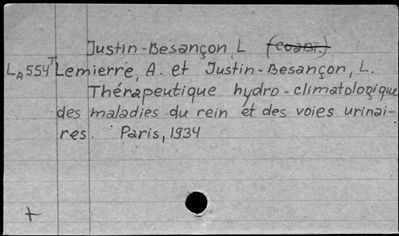 Justin-Besançon, L (coaвт.)
LA554T Lemierre, A. et Justin-Besançon, L.
Thérapeutique hydro-climatologique
des maladies du rein et des voies urinai-
res. Paris, 1934
+